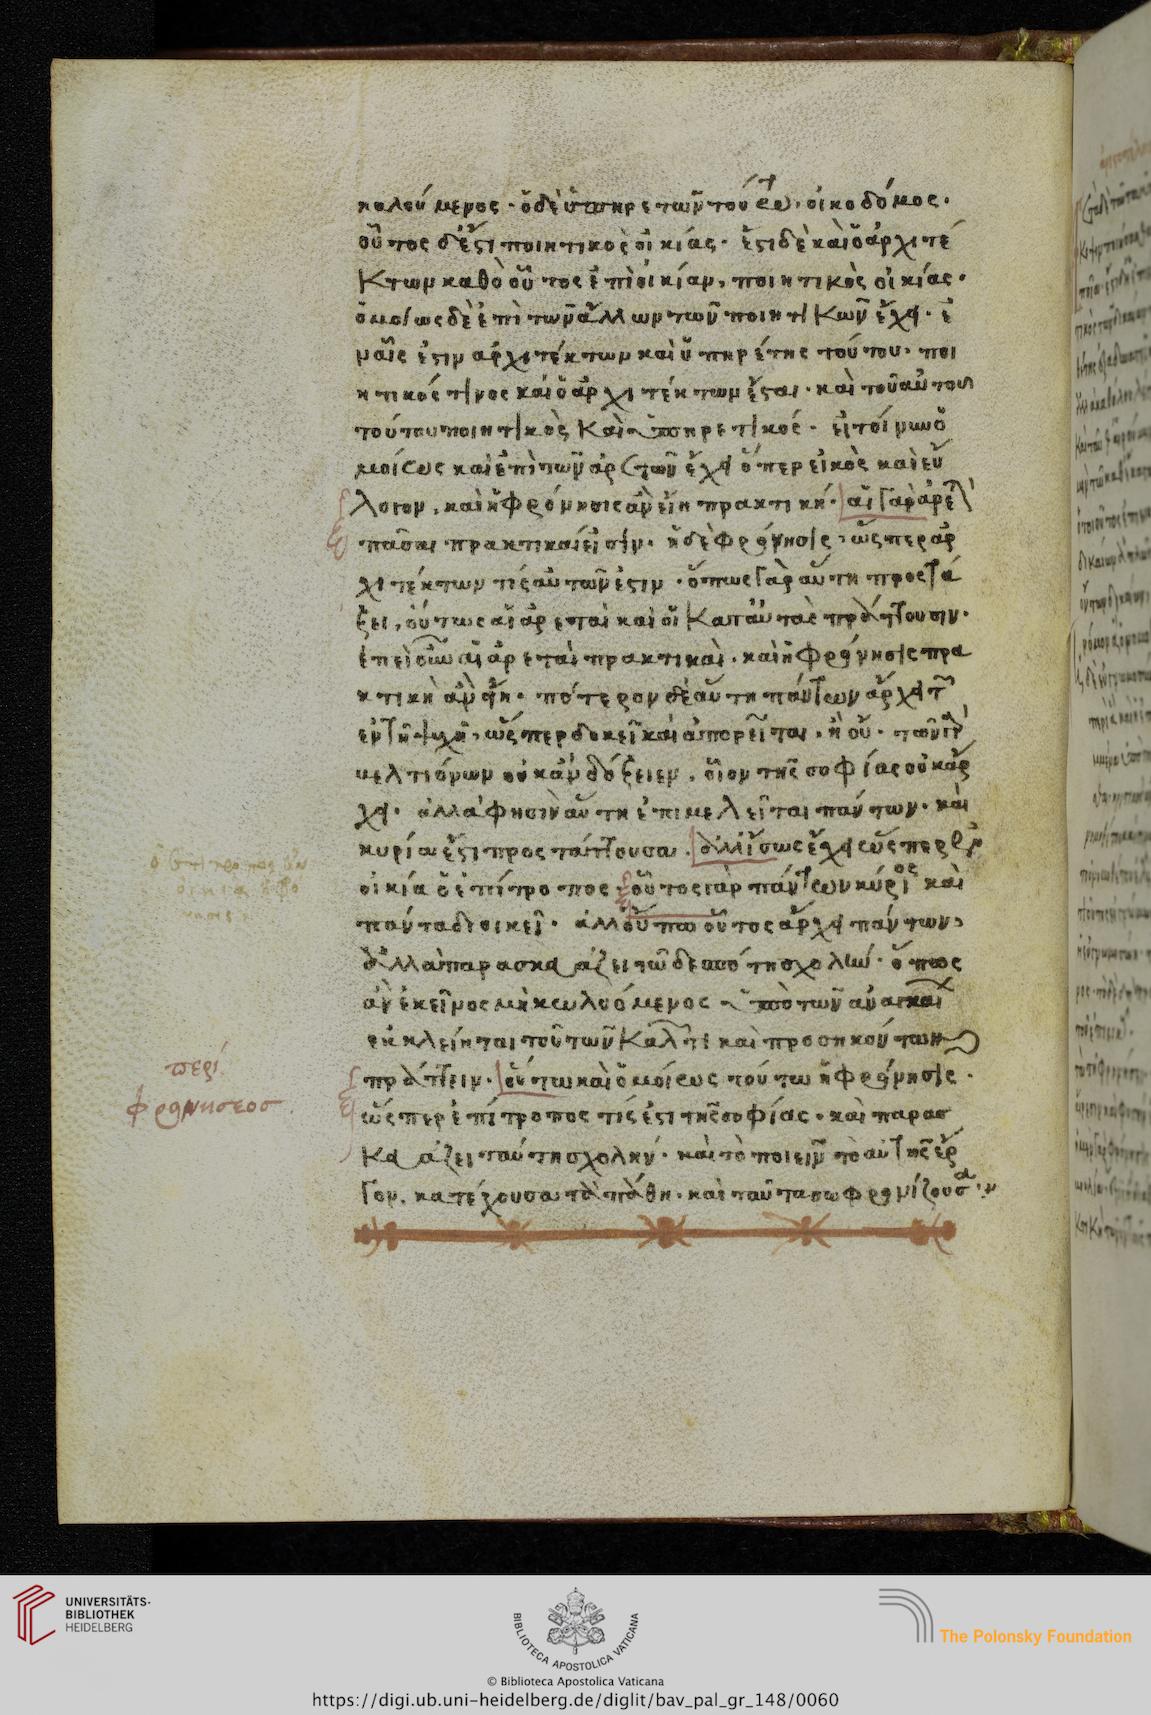 καλούμενος · ὁ δὲ ὑπηρετῶν τούτω, οἰκοδόμος.
οὗτος δ' ἐστὶ ποιητικὸς οἰκίας · ἔστι δὲ καὶ ὁ ἀρχιτέ
κτων καθὸ οὗτος ἐπὶ οἰκίαν, ποιητικὸς οἰκίας.
ὁμοίως δὲ ἐπὶ τῶν ἄλλων τῶν ποιητικῶν ἔχει · ἐ
ν αἷς ἐστιν ἀρχιτέκτων καὶ ὑπηρέτης τούτου · ποι
ητικός τινος καὶ ὁ ἀρχιτέκτων ἔσται · καὶ τοῦ αὐτοῦ
τούτου ποιητικὸς καὶ ὑπηρετικός · εἰ τοίνυν ὁ
μοίως καὶ ἐπὶ τῶν ἀρετῶν ἔχει ὅπερ εἰκὸς καὶ εὔ
λογον, καὶ ἡ φρόνησις ἂν εἴη πρακτική · αἱ γὰρ ἀρετ
πᾶσαι πρακτικαί εἰσιν · ἡ δὲ φρόνησις, ὥσπερ ἀρ
χιτέκτων τίς αὐτῶν ἐστιν · ὅπως γὰρ αὕτη προστά
ξει, οὕτως αἱ ἀρεταὶ καὶ οἱ κατ' αὐτὰς πράττουσιν.
ἐπεὶ οὖν αἱ ἀρεταὶ πρακτικαὶ · καὶ ἡ φρόνησις πρα
κτικὴ ἂν εἴη · πότερον δὲ αὕτη πάντων ἄρχει τῶν
ἐν τῇ ψυχῇ, ὥσπερ δοκεῖ καὶ ἀπορεῖται · ἢ οὔ · τῶν γὰρ
βελτιόνων οὐκ ἂν δόξειεν · οἷον τῆς σοφίας οὐκ ἄρ
χει · ἀλλὰ φησὶν αὕτη ἐπιμελεῖται πάντων · καὶ
κυρία ἐστὶ προστάττουσα · ἀλλ' ἴσως ἔχει ὥσπερ ἐν
οἰκία ὁ ἐπίτροπος · οὗτος γὰρ πάντων κύριος καὶ
πάντα διοικεῖ · ἀλλ' οὔπω οὗτος ἄρχει πάντων,
ἀλλὰ παρασκευάζει τῶ δεσπότη σχολὴν · ὅπως
ἂν ἐκεῖνος μὴ κωλυόμενος ὑπὸ τῶν ἀναγκαί
ἐκκλείηται τοῦ τῶν καλῶν τι καὶ προσηκόντων
πράττειν · οὕτω καὶ ὁμοίως τούτω ἡ φρόνησις ·
ὥσπερ ἐπίτροπος τίς ἐστι τῆς σοφίας · καὶ παρασ
κευάζει ταύτη σχολὴν · καὶ τὸ ποιεῖν τὸ αὑτῆς ἔρ
γον, κατέχουσα τὰ πάθη · καὶ ταῦτα σωφρονίζουσα
ὁ ἐπίτροπος ἐν
οἰκία
περί
φρονησεοσ
UNIVERSITÄTS-
BIBLIOTHEK
HEIDELBERG
BIBLIOTECA APOSTOLICA VATICANA
The Polonsky Foundation
© Biblioteca Apostolica Vaticana
https://digi.ub.uni-heidelberg.de/diglit/bav_pal_gr_148/0060